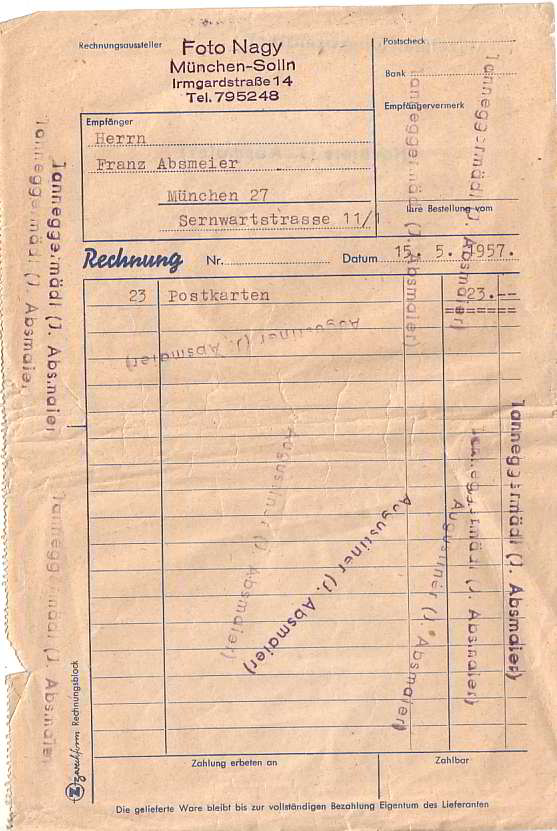 Rechnungsaussteller
Foto Nagy
München-Solln
Irmgardstraße 14
Tel. 795248
Postscheck
Bank
Empfängervermerk
Empfänger
Herrn
Franz Absmeier
München 27
Sernwartstrasse 11/1
Ihre Bestellung vom
Rechnung Nr. Datum 15. 5. 1957.
23 Postkarten 23.--
=======
Augustiner (J. Absmaier)
Augustiner (J. Absmaier)
Augustiner (J. Absmaier)
Augustiner (J. Absmaier)
Tanneggermädl (J. Absmaier)
Tanneggermädl (J. Absmaier)
Tanneggermädl (J. Absmaier)
Tanneggermädl (J. Absmaier)
Tanneggermädl (J. Absmaier)
Tanneggermädl (J. Absmaier)
Tanneggermädl (J. Absmaier)
Zweckform Rechnungsblock
Zahlung erbeten an
Zahlbar
Die gelieferte Ware bleibt bis zur vollständigen Bezahlung Eigentum des Lieferanten